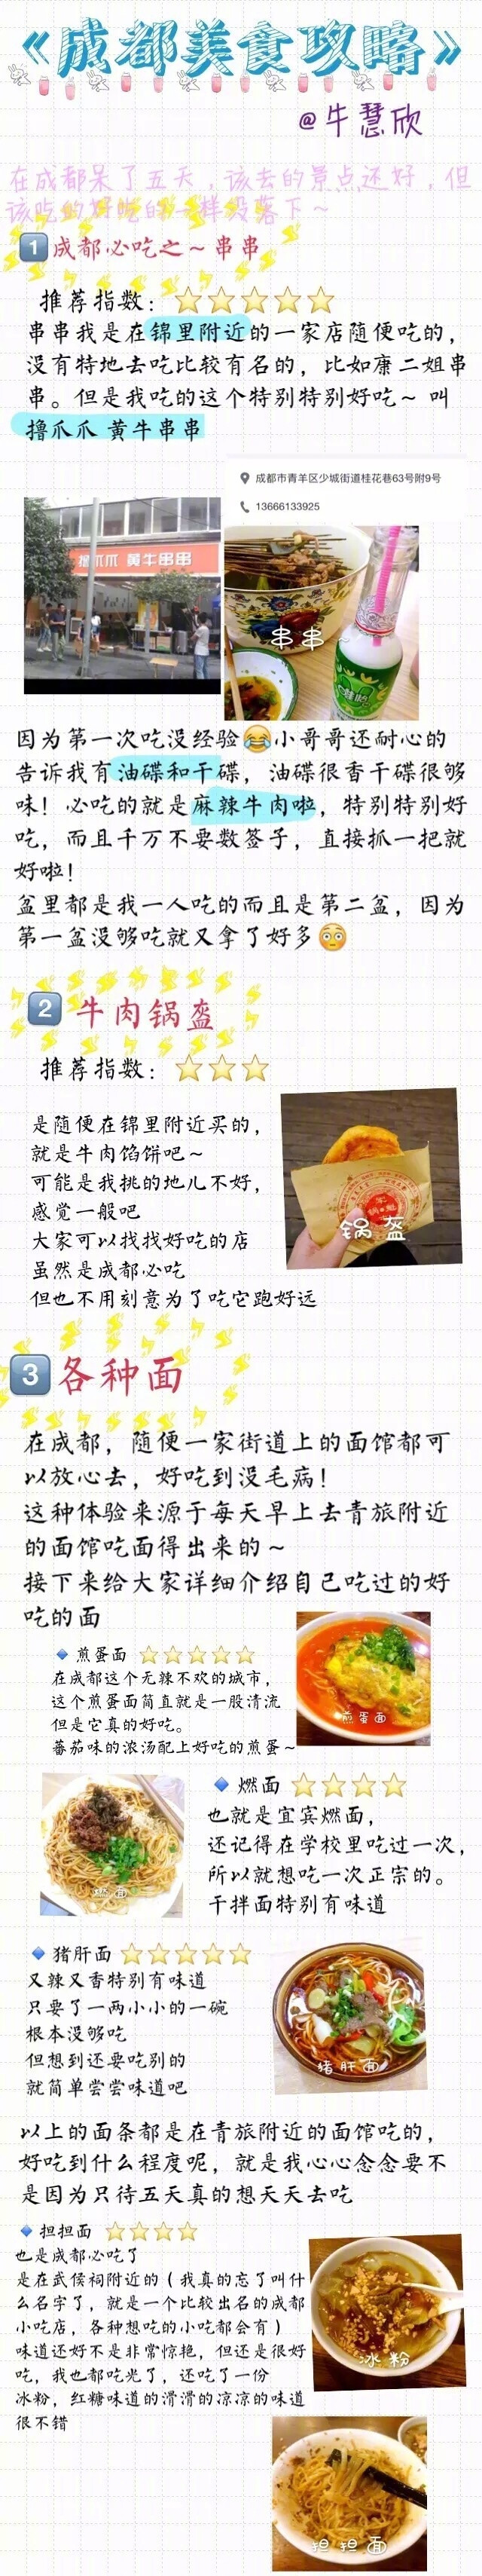 《成都美食攻略》
@牛慧欣
在成都呆了五天，该去的景点还好，但
该吃的好吃的一样没落下~
1 成都必吃之~串串
推荐指数：
串串我是在锦里附近的一家店随便吃的，
没有特地去吃比较有名的，比如康二姐串
串。但是我吃的这个特别特别好吃~ 叫
撸爪爪 黄牛串串
成都市青羊区少城街道桂花巷63号附9号
13666133925
撸爪爪 黄牛串串
串串~
因为第一次吃没经验😂小哥哥还耐心的
告诉我有油碟和干碟，油碟很香干碟很够
味！必吃的就是麻辣牛肉啦，特别特别好
吃，而且千万不要数签子，直接抓一把就
好啦！
盆里都是我一人吃的而且是第二盆，因为
第一盆没够吃就又拿了好多😳
2 牛肉锅盔
推荐指数：
是随便在锦里附近买的，
就是牛肉馅饼吧~
可能是我挑的地儿不好，
感觉一般吧
大家可以找找好吃的店
虽然是成都必吃
但也不用刻意为了吃它跑好远
锅盔
3 各种面
在成都，随便一家街道上的面馆都可
以放心去，好吃到没毛病！
这种体验来源于每天早上去青旅附近
的面馆吃面得出来的~
接下来给大家详细介绍自己吃过的好
吃的面
煎蛋面
在成都这个无辣不欢的城市，
这个煎蛋面简直就是一股清流
但是它真的好吃。
蕃茄味的浓汤配上好吃的煎蛋~
煎蛋面
燃面
也就是宜宾燃面，
还记得在学校里吃过一次，
所以就想吃一次正宗的。
干拌面特别有味道
燃面
猪肝面
又辣又香特别有味道
只要了一两小小的一碗
根本没够吃
但想到还要吃别的
就简单尝尝味道吧
猪肝面
以上的面条都是在青旅附近的面馆吃的，
好吃到什么程度呢，就是我心心念念要不
是因为只待五天真的想天天去吃
担担面
也是成都必吃了
是在武侯祠附近的（我真的忘了叫什
么名字了，就是一个比较出名的成都
小吃店，各种想吃的小吃都会有）
味道还好不是非常惊艳，但还是很好
吃，我也都吃光了，还吃了一份
冰粉，红糖味道的滑滑的凉凉的味道
很不错
冰粉
担担面